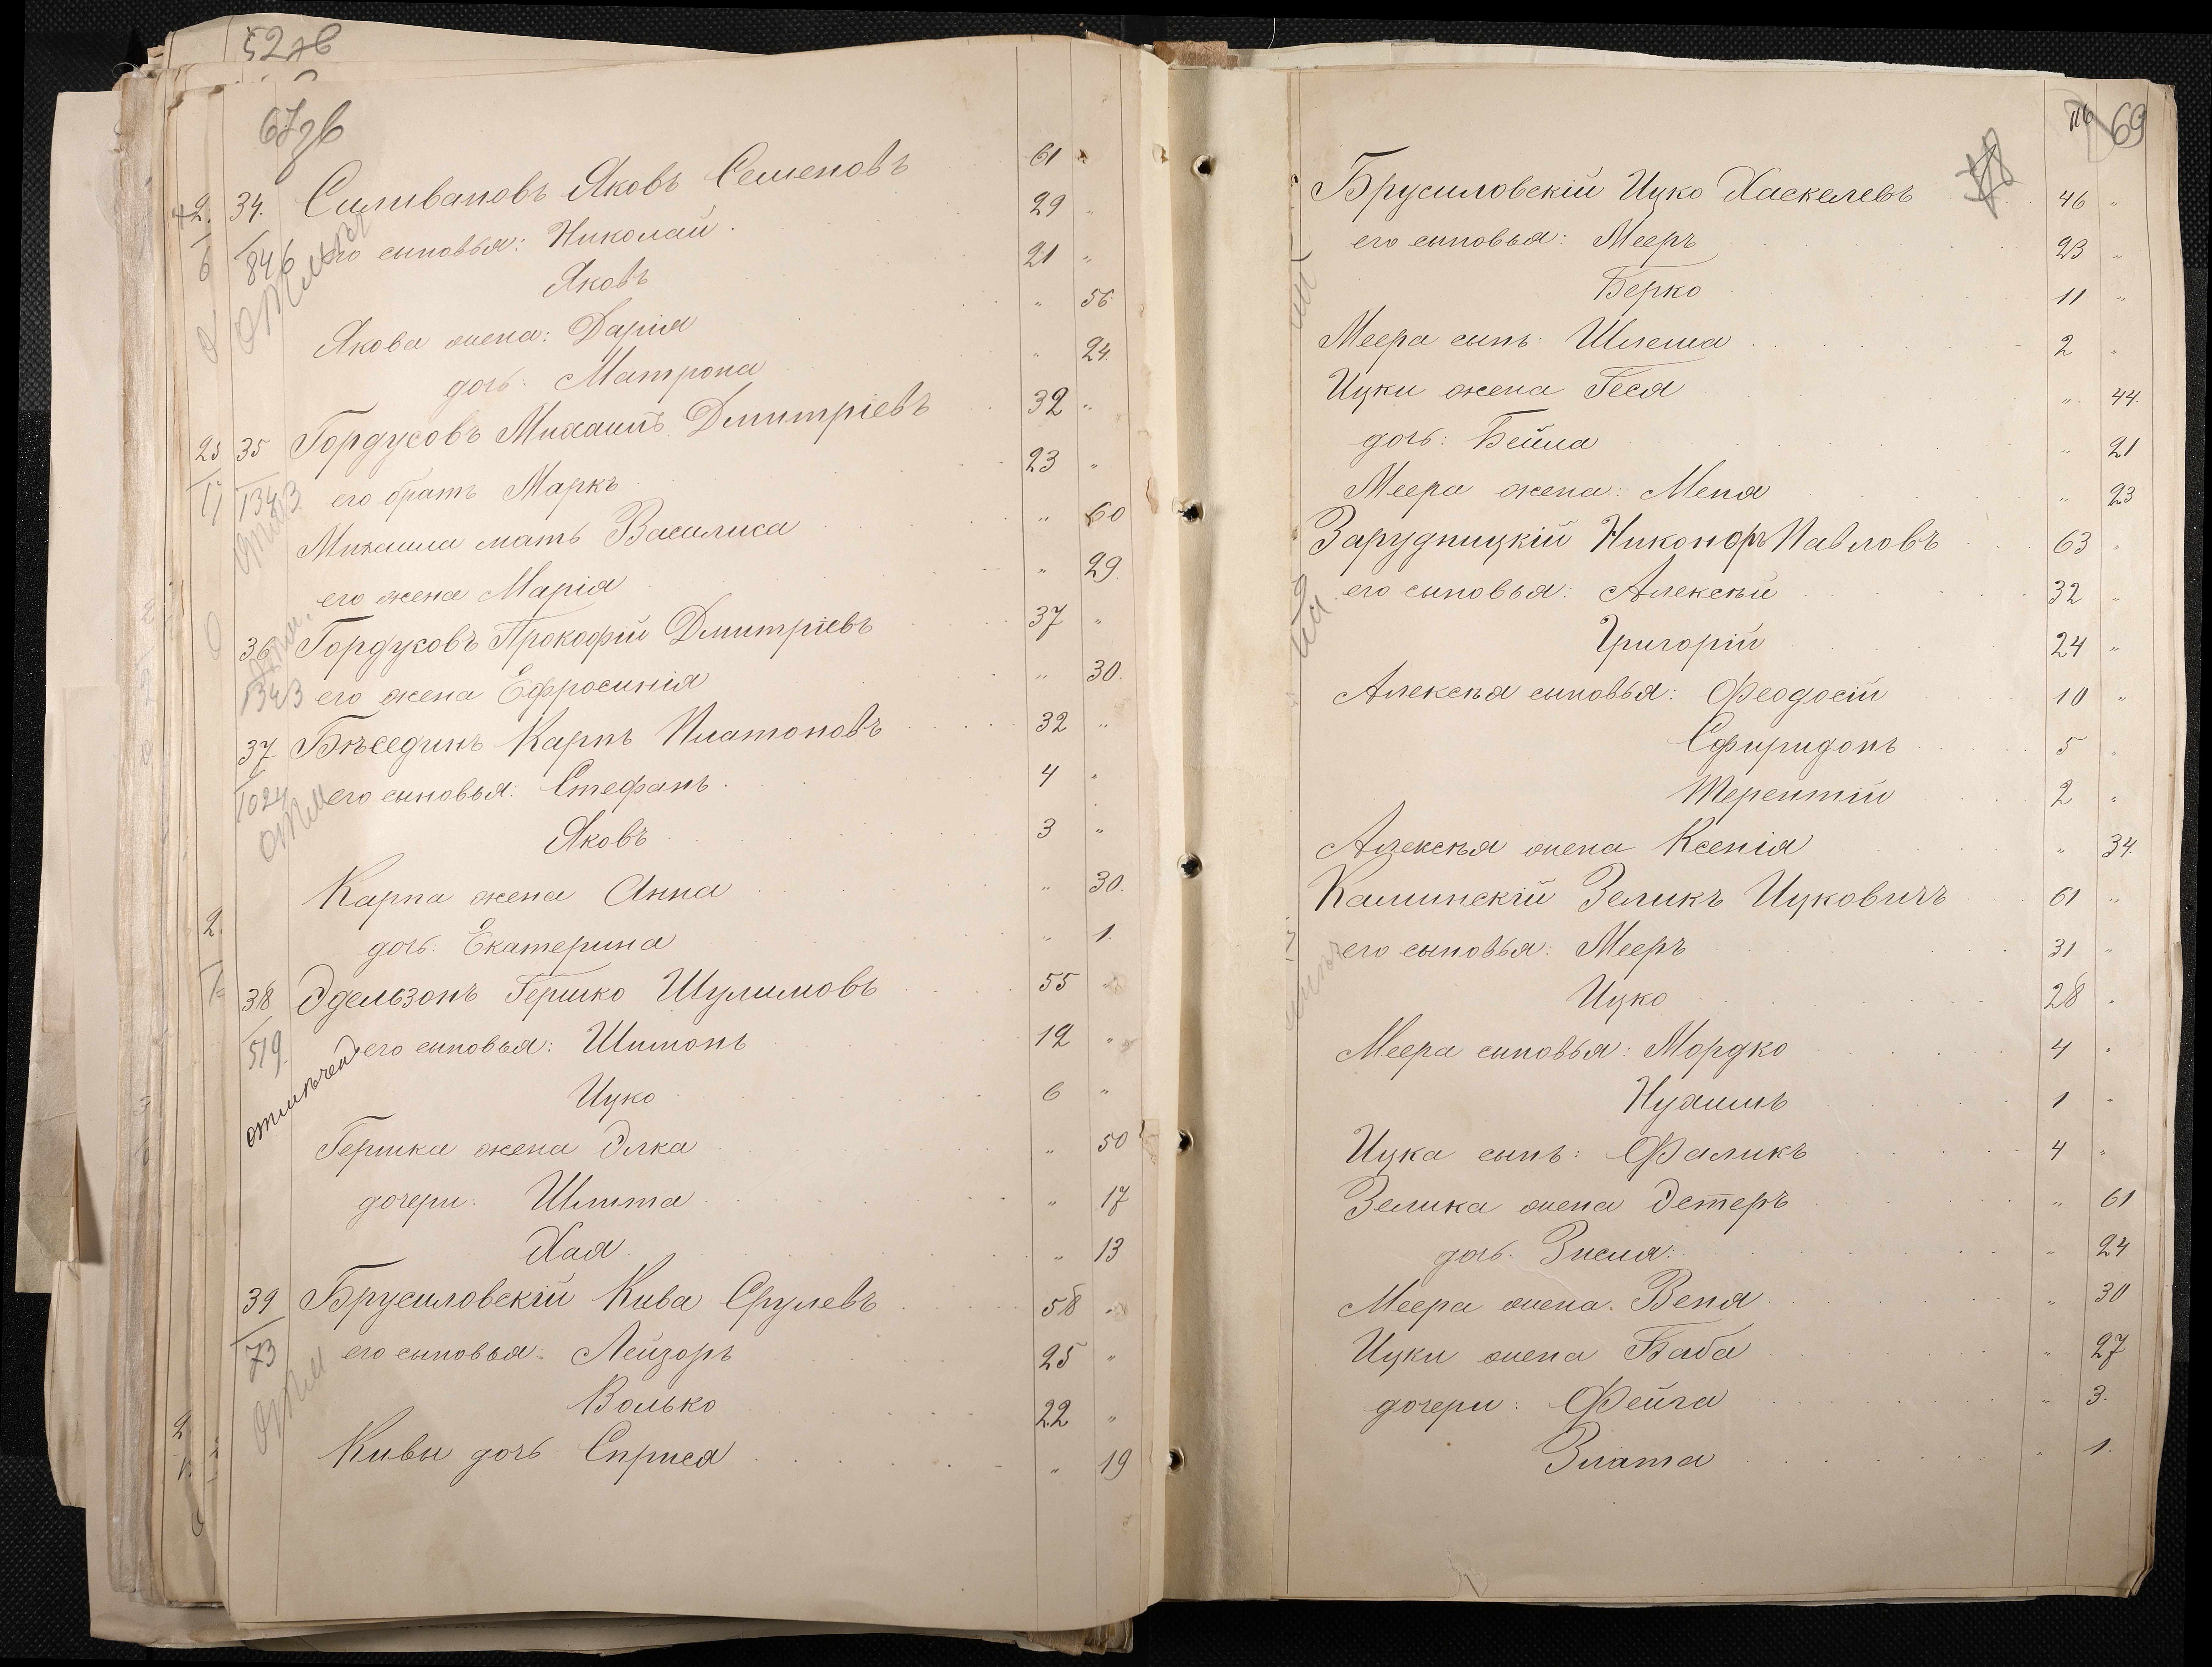 52 зв
67 зв
34. Силивановъ Яковъ Семеновъ 61 "
846 его сыновья: Николай 29 "
Яковъ 21 "
Якова жена: Дарія " 56
дочь: Матрона " 24
35 Гордусовъ Михаилъ Дмитріевъ 32 "
1343 его братъ Маркъ 23 "
Михаила мать Василиса " 60
его жена Марія " 29
36 Гордусовъ Прокофій Дмитріевъ 37 "
1343 его жена Ефросинія " 30.
37 Бѣсединъ Карпъ Платоновъ 32 "
1024 его сыновья: Стефанъ 4 "
Яковъ 3 "
Карпа жена Анна " 30.
дочь: Екатерина " 1.
38 Эдельзонъ Гершко Шулимовъ 55 "
519. его сыновья: Шимонъ 12 "
отмѣчен
Ицко 6 "
Гершка жена Элка " 50
дочери: Шлита " 17
Хая " 13
39 Брусиловскій Кива Срулевъ 58 "
73 его сыновья: Лейзоръ 25 "
Волько 22 "
Кивы дочь Сприса " 19
116 69
Брусиловскій Ицко Хаскелевъ 46 "
его сыновья: Мееръ 23 "
Берко 11 "
Меера сынъ: Шлема 2 "
Ицки жена Геся " 44.
дочь: Бейла " 21
Меера жена: Меня " 23
Зарудницкій Никоноръ Павловъ 63 "
его сыновья: Алексѣй 32 "
Григорій 24 "
Алексѣя сыновья: Феодосій 10 "
Сфиридонъ 5 "
Терентій 2 "
Алексѣя жена Ксенія " 34.
Каминскій Зеликъ Ицковичъ 61 "
его сыновья: Мееръ 31 "
Ицко 28 "
Меера сыновья: Мордко 4 "
Нухимъ 1 "
Ицка сынъ: Фаликъ 4 "
Зелика жена Эстеръ " 61
дочь: Зисля: " 24
Меера жена: Веня " 30
Ицки жена Баба " 27
дочери: Фейга " 3.
Злата " 1.